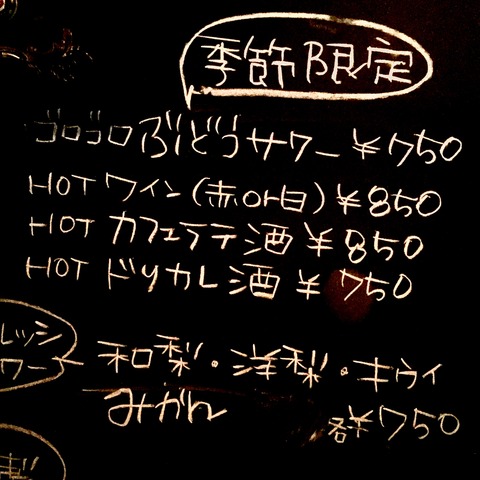 季節限定
ゴロゴロぶどうサワー ¥750
HOT ワイン(赤or白) ¥850
HOT カフェラテ酒 ¥850
HOT ドリカレ酒 ¥750
レッシ
ワー
和梨・洋梨・キウイ
みかん
各¥750